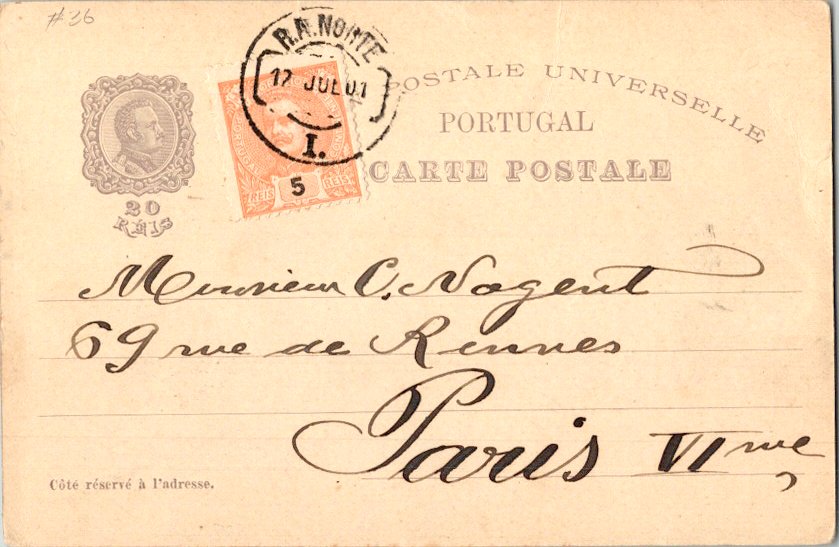 #36
R.R. NORTE
17 JUL 01
I.
5
REIS REIS
20
RÉIS
POSTALE UNIVERSELLE
PORTUGAL
CARTE POSTALE
Monsieur C. Nogent
69 rue de Rennes
Paris VI me
Côté réservé à l'adresse.